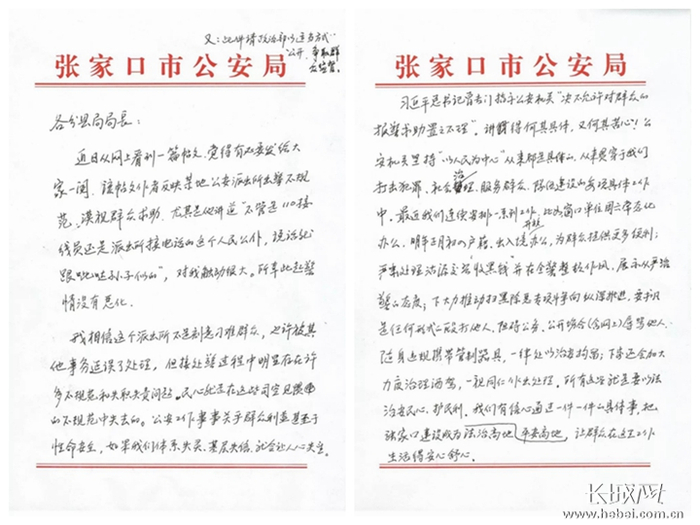 又：此件请政治部以适当方式
公开，争取群
众监督。
张家口市公安局
各分县局局长：
近日从网上看到一篇帖文，觉得有必要发给大
家一阅。该帖文作者反映某地公安派出所出警不规
范、漠视群众求助。尤其是他讲道“不管是110接
线员还是派出所接电话的这个人民公仆，说话就
跟呲哒孙子似的”，对我触动很大。所幸此起警
情没有恶化。
我相信这个派出所不是刻意刁难群众，也许被其
他事务延误了处理，但接处警过程中明显存在许
多不规范和失职失责问题。民心就是在这些司空见惯
的不规范中失去的。公安工作事事关乎群众利益甚至于
性命安全，如果我们体系失灵、基层失信，就会让人心失望。
张家口市公安局
习近平总书记曾专门指示公安机关“决不允许对群众的
报警求助置之不理”。讲得何其具体，又何其苦心！公
安机关坚持“以人民为中心”从来都是具体的，从来贯穿于我们
打击犯罪、社会治理、服务群众、队伍建设的每项具体工作
中。最近我们连续安排一系列工作，比如窗口单位周六常态化
办公，明年正月初八户籍、出入境开始办公，为群众提供更多便利；
严肃处理沽源交警“收黑钱”并在全警整顿作风，展示从严治
警的态度；下大力推动扫黑除恶专项斗争向纵深推进，要求凡
是任何形式的殴打他人、阻碍公务、公开场合（含网上）辱骂他人、
随身违规携带管制器具，一律处以治安拘留；下步还会加大
力度治理酒驾，一视同仁作出处理。所有这些就是要以法
治安民心、护民利。我们有信心通过一件一件的具体事，把
张家口建设成为法治高地、平安高地，让群众在这里工作
生活得安心舒心。
长城网
www.hebei.com.cn